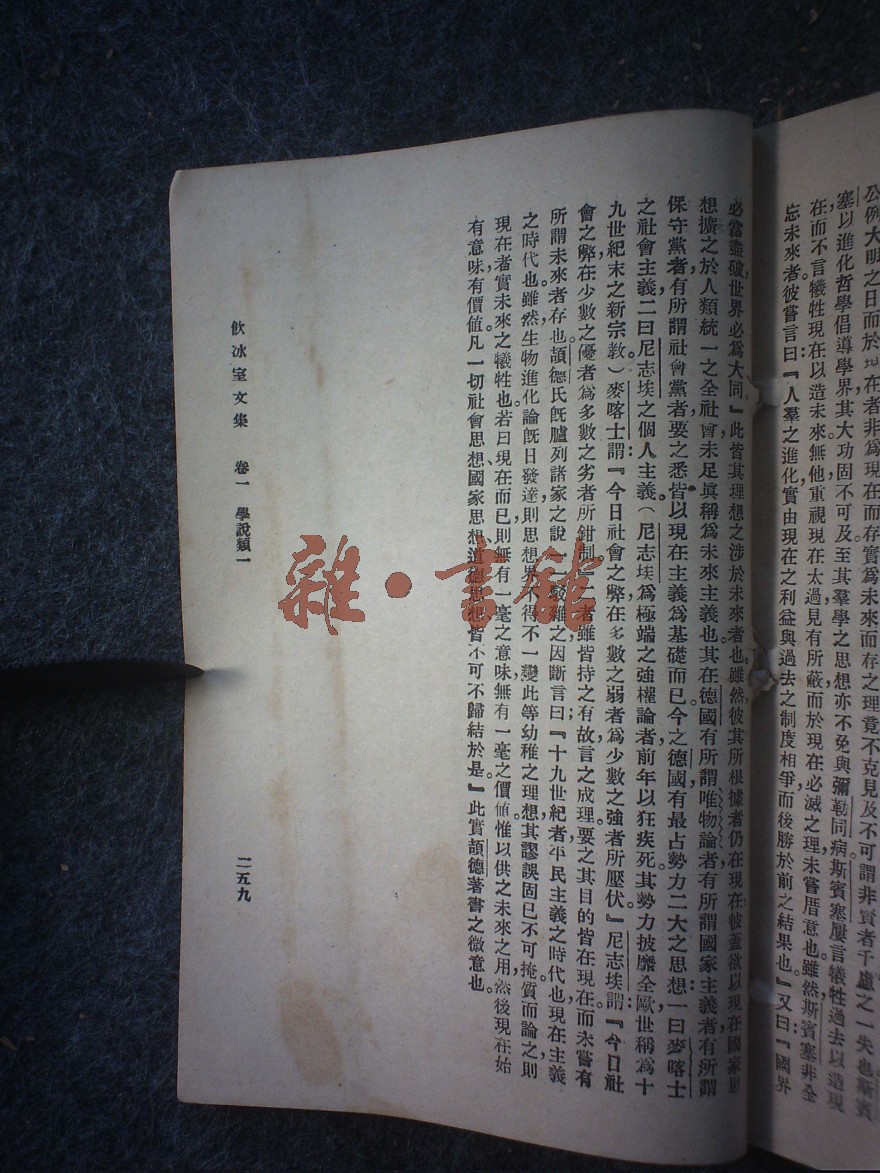 公例大明之日而於現在者非為現在而存實為未來而存之理竟不克見及不可謂非賢者千慮之一失也斯賓
塞以進化哲學倡導學界其大功固不可及至其羣學之思想亦不免與彌勒同病斯賓塞屢言犧牲過去以造現
在而不言犧牲現在以造未來無他重視現在太過見有所蔽而於現在必滅之理未嘗厝意也雖然斯賓塞非全
忘未來者彼嘗言曰『人羣之進化實由現在之利益與過去之制度相爭而後勝於前之結果也』又曰『國界
必當盡破世界必為大同』此皆其理想之涉於未來者也雖然彼其所根據者仍在現在彼蓋欲以現在國家思
想擴之於人類統一之全社會未足眞稱為未來主義也其在德國有所謂唯物論者有所謂國家主義者有所謂
保守黨者有所謂社會黨者要之悉皆以現在主義為基礎而已今之德國有最占勢力二大之思想一曰麥喀士
之社會主義二曰尼志埃之個人主義（尼志埃為極端之強權論者前年以狂疾死其勢力披靡全歐世稱為十
九世紀末之新宗教）麥喀士謂『今日社會之弊在多數之弱者為少數之強者所壓伏』尼志埃謂『今日社
會之弊在少數之優者為多數之劣者所鉗制』二者雖皆持之有故言之成理要之其目的皆在現在而未嘗有
所謂未來者存也頡德氏旣臚列諸家之說一一駁難之因斷言曰『十九世紀者平民主義之時代也現在主義
之時代也雖然生物進化論旣日發達則思想界不得不一變此等幼稚之理想其謬誤固已不可掩質而論之則
現在者實未來之犧牲也若曰現在而已則無有一毫之意味無有一毫之價値惟以供之未來之用然後現在始
有意味有價値凡一切社會思想國家思想道德思想皆不可不歸結於是』此實頡德著書之微意也
飲冰室文集　卷一　學說類一
二五九
雜·書館